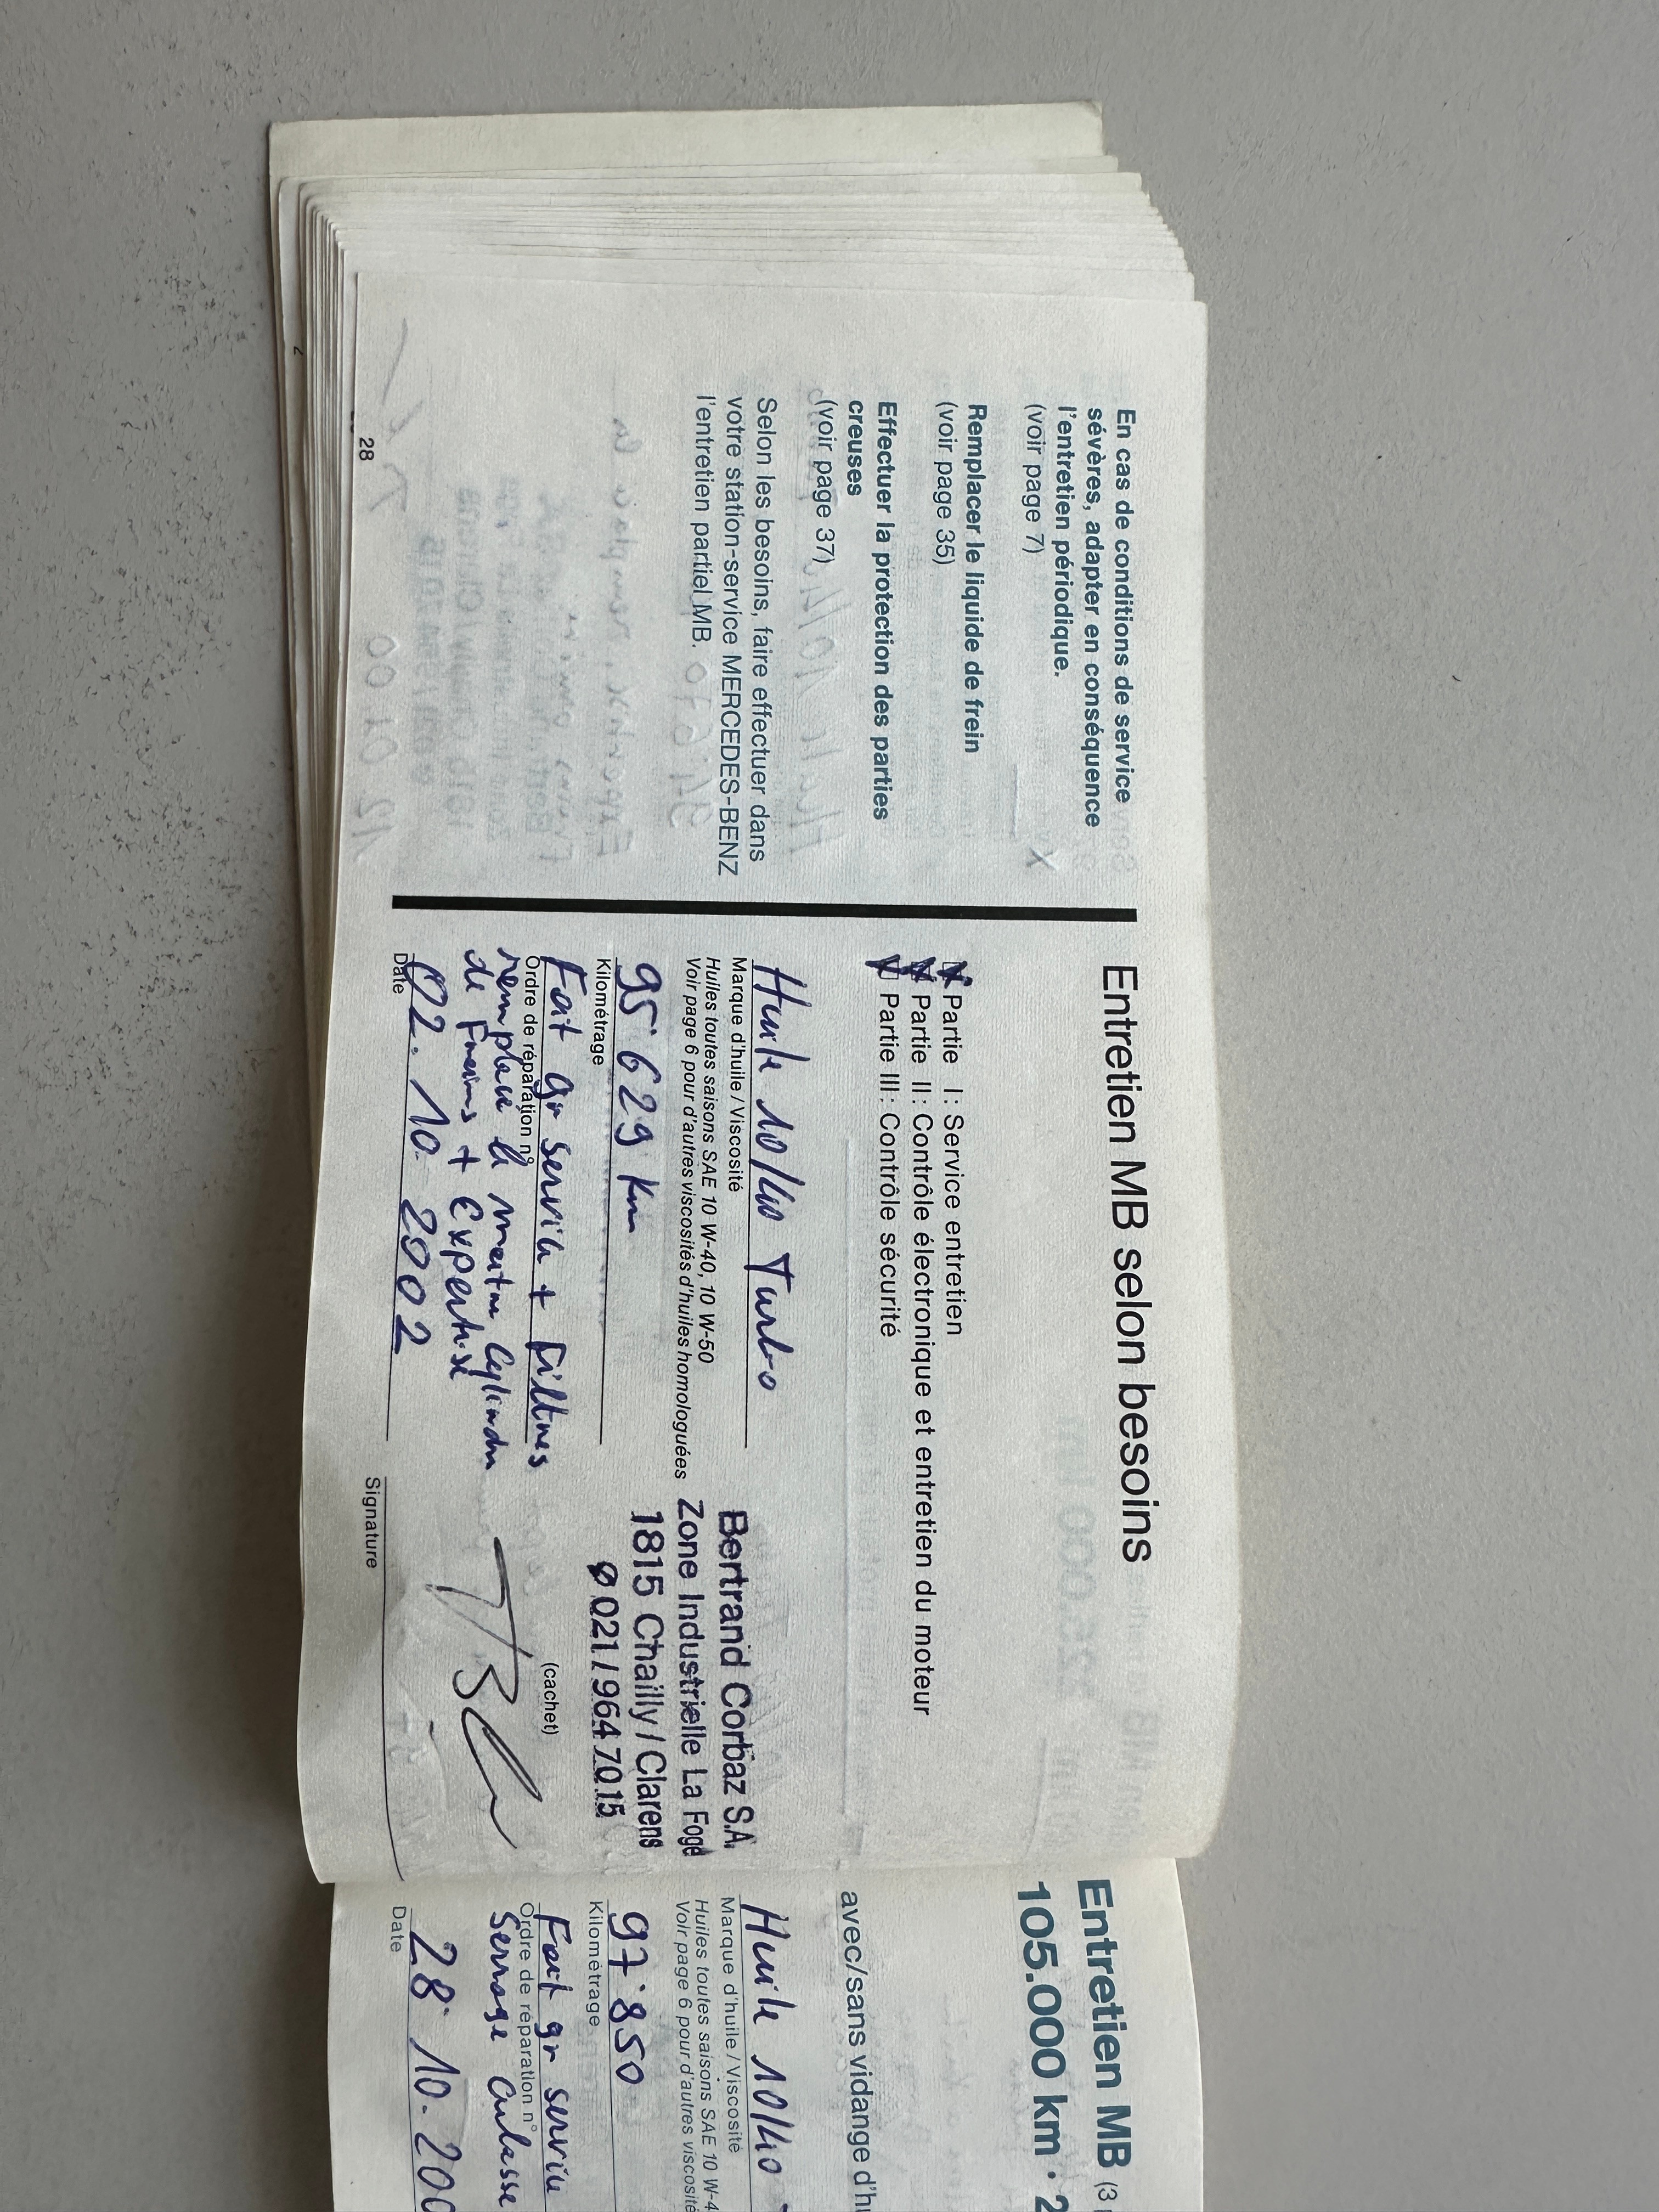 En cas de conditions de service
sévères, adapter en conséquence
l'entretien périodique.
(voir page 7)
Remplacer le liquide de frein
(voir page 35)
Effectuer la protection des parties
creuses
(voir page 37)
Selon les besoins, faire effectuer dans
votre station-service MERCEDES-BENZ
l'entretien partiel MB.
28
Entretien MB selon besoins
Partie I: Service entretien
Partie II: Contrôle électronique et entretien du moteur
Partie III: Contrôle sécurité
Huile 10/40 Turbo
Marque d'huile/Viscosité
Huiles toutes saisons SAE 10 W-40, 10 W-50
Voir page 6 pour d'autres viscosités d'huiles homologuées
95'629 Km
Kilométrage
Fait gr service + Filtres
Ordre de réparation n°
remplacé le maitre cylindre
de Freins + Expertise
02. 10. 2002
Date
Bertrand Corbaz S.A.
Zone Industrielle La Foge
1815 Chailly / Clarens
021 / 964 70 15
(cachet)
Signature
Entretien MB (3
105.000 km · 2
avec/sans vidange d'hu
Huile 10/40
Marque d'huile/Viscosité
Huiles toutes saisons SAE 10 W-4
Voir page 6 pour d'autres viscosité
97'850
Kilométrage
Fait gr service
Ordre de réparation n°
Serrage culasse
28. 10. 200
Date